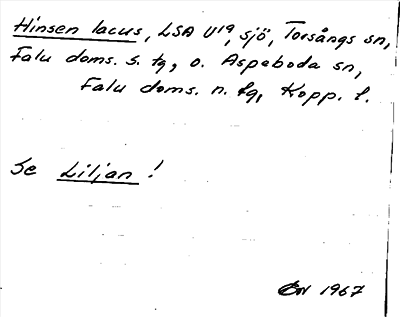 Hinsen lacus, LSA U19, sjö, Torsångs sn,
Falu doms. s. tg, o. Aspeboda sn,
Falu doms. n. tg, Kopp. l.
Se Liljan!
1967